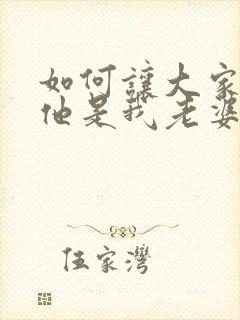 如何讓大家
他是我老婆
伍家灣